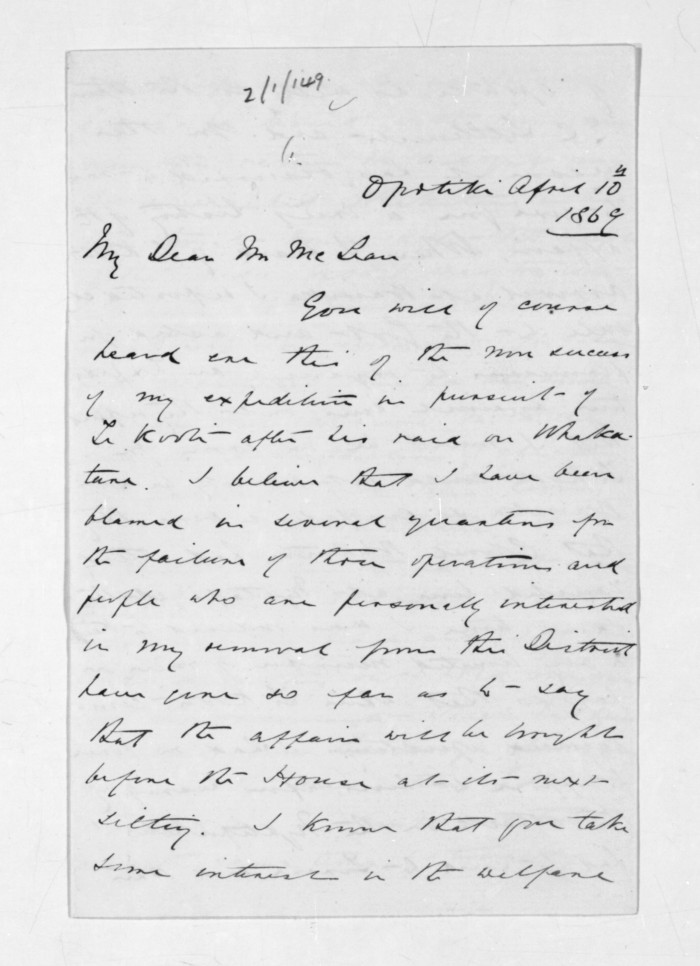 2/1/149
1.
Opotiki April 10th
1869
My Dear Mr McLean
You will of course
heard ere this of the non success
of my expedition in pursuit of
Te Kooti after his raid on Whaka-
tane. I believe that I have been
blamed in several quarters for
the failure of those operations and
people who are personally interested
in my removal from this District
have gone so far as to say
that the affair will be brought
before the House at its next
sitting. I know that you take
some interest in the welfare